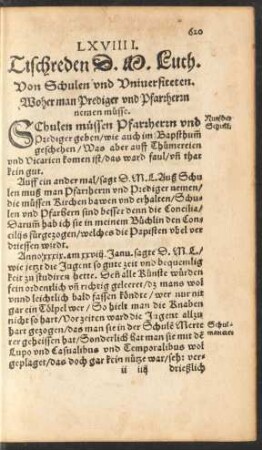 620
LXVIIII.
Tischreden D. M. Luth.
Von Schulen vnd Vniuersiteten.
Woher man Prediger vnd Pfarhern
nemen müsse.
SChulen müssen Pfarherrn vnd
Prediger geben/ wie auch im Bapsthum̃
geschehen/ Was aber auff Thümereien
vnd Vicarien komen ist/ das ward faul/ vñ that
kein gut.
Auff ein ander mal/ sagt D. M. L. Auß Schu
len muß man Pfarherrn vnd Prediger nemen/
die müssen Kirchen bawen vnd erhalten/ Schu
len vnd Pfarhern sind besser denn die Concilia/
Darum̃ hab ich sie in meinem Büchlin den Con-
cilijs fürgezogen/ welches die Papisten vbel ver
driessen wirdt.
Anno xxxix. am xxviij. Janu. sagte D. M. L/
wie jetzt die Jugent so gute zeit vnd bequemlig
keit zu studiren hette. Deñ alle Künste würden
fein ordentlich vñ richtig geleeret/ dz mans wol
vnnd leichtlich bald fassen köndte/ wer nur nit
gar ein Tölpel wer/ So hielt man die Knaben
nicht so hart/ Vor zeiten ward die Jugent allzu
hart gezogen/ das man sie in der Schulẽ Merte
rer geheissen hat/ Sonderlich hat man sie mit dẽ
Lupo vnd Casualibus vnd Temporalibus wol
geplaget/ das doch gar kein nütze war/ sehr ver-
driešlich
Schul-